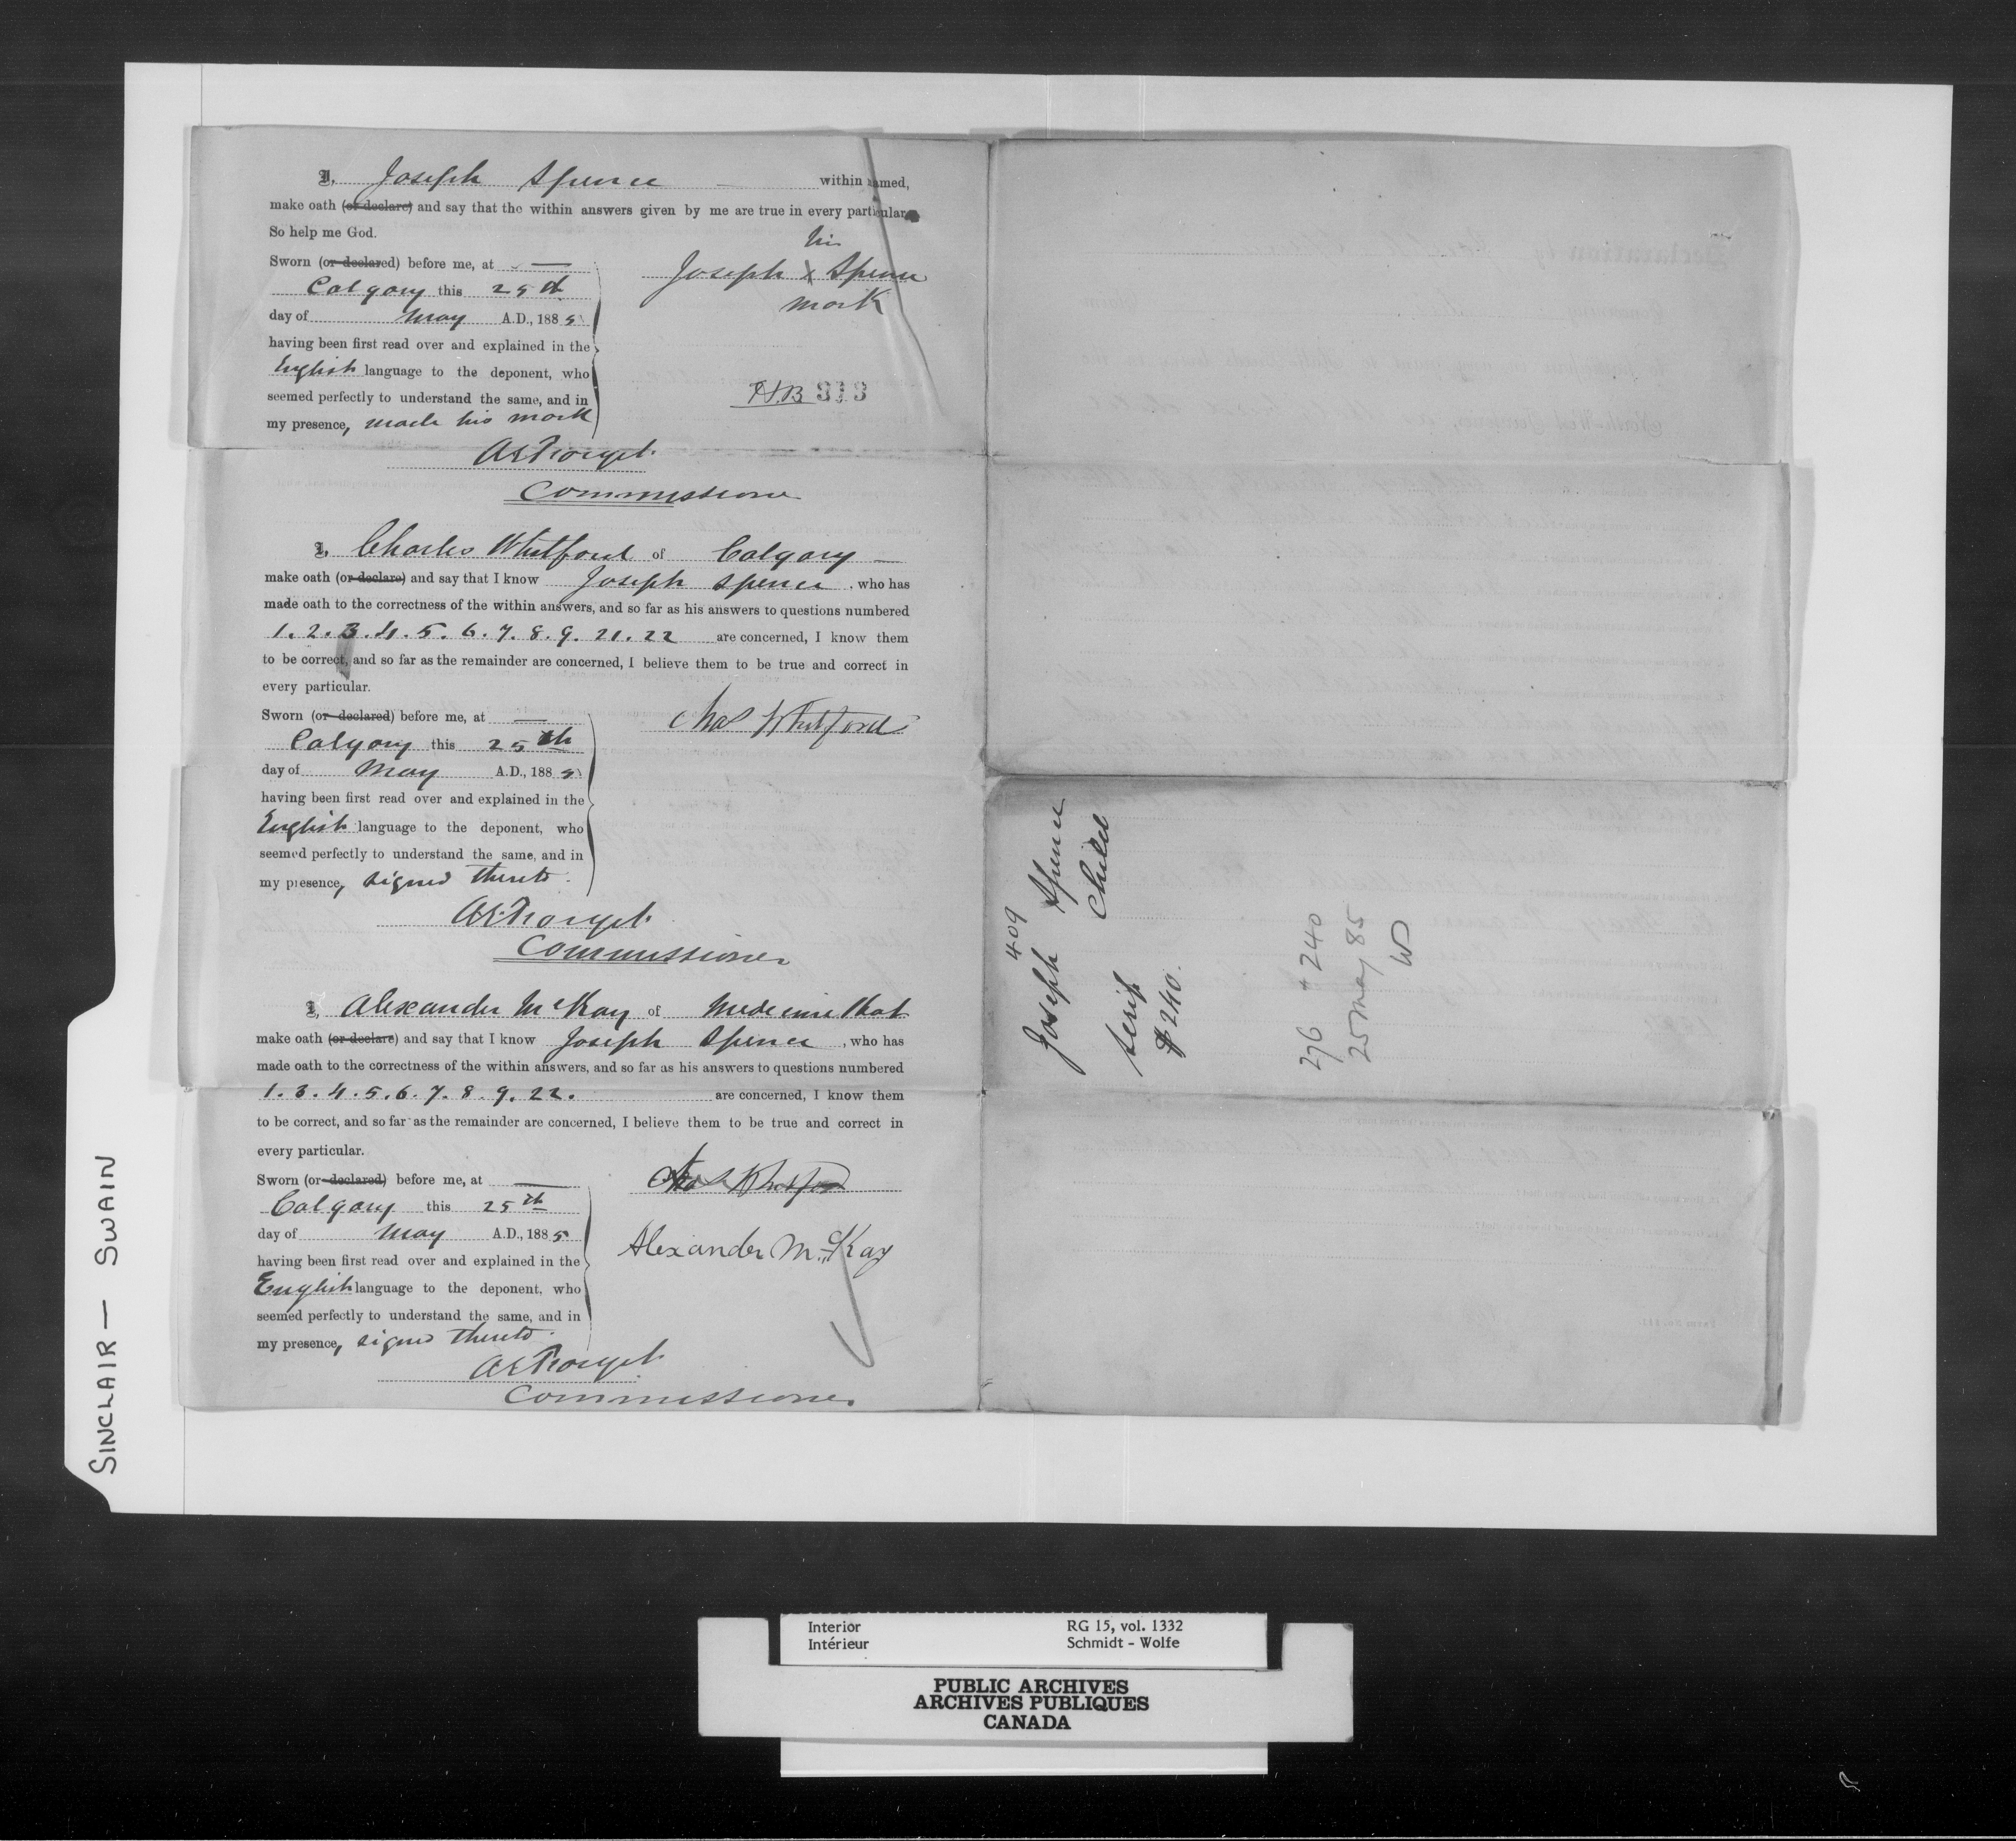 I, Joseph Spence within named,
make oath (or declare) and say that the within answers given by me are true in every particular
So help me God.
Sworn (or declared) before me, at
Calgary this 25th
day of May A.D., 1885
having been first read over and explained in the
English language to the deponent, who
seemed perfectly to understand the same, and in
my presence, made his mark
his
Joseph x Spence
mark
H.B 313
AEForget
Commissioner
I, Charles Whitford of Calgary
make oath (or declare) and say that I know Joseph Spence, who has
made oath to the correctness of the within answers, and so far as his answers to questions numbered
1.2.3.4.5.6.7.8.9.21.22 are concerned, I know them
to be correct, and so far as the remainder are concerned, I believe them to be true and correct in
every particular.
Sworn (or declared) before me, at
Calgary this 25th
day of May A.D., 1885
having been first read over and explained in the
English language to the deponent, who
seemed perfectly to understand the same, and in
my presence, signed thereto.
Chas Whitford
AEForget
Commissioner
I, Alexander McKay of Medicine Hat
make oath (or declare) and say that I know Joseph Spence, who has
made oath to the correctness of the within answers, and so far as his answers to questions numbered
1.3.4.5.6.7.8.9.22. are concerned, I know them
to be correct, and so far as the remainder are concerned, I believe them to be true and correct in
every particular.
Sworn (or declared) before me, at
Calgary this 25th
day of May A.D., 1885
having been first read over and explained in the
English language to the deponent, who
seemed perfectly to understand the same, and in
my presence, signed thereto.
Chas Whitford
Alexander McKay
AEForget
Commissioner.
409
Joseph Spence
Child
scrip
$240.
276 + 240
25 May 85
SINCLAIR — SWAIN
Interior RG 15, vol. 1332
Intérieur Schmidt - Wolfe
PUBLIC ARCHIVES
ARCHIVES PUBLIQUES
CANADA